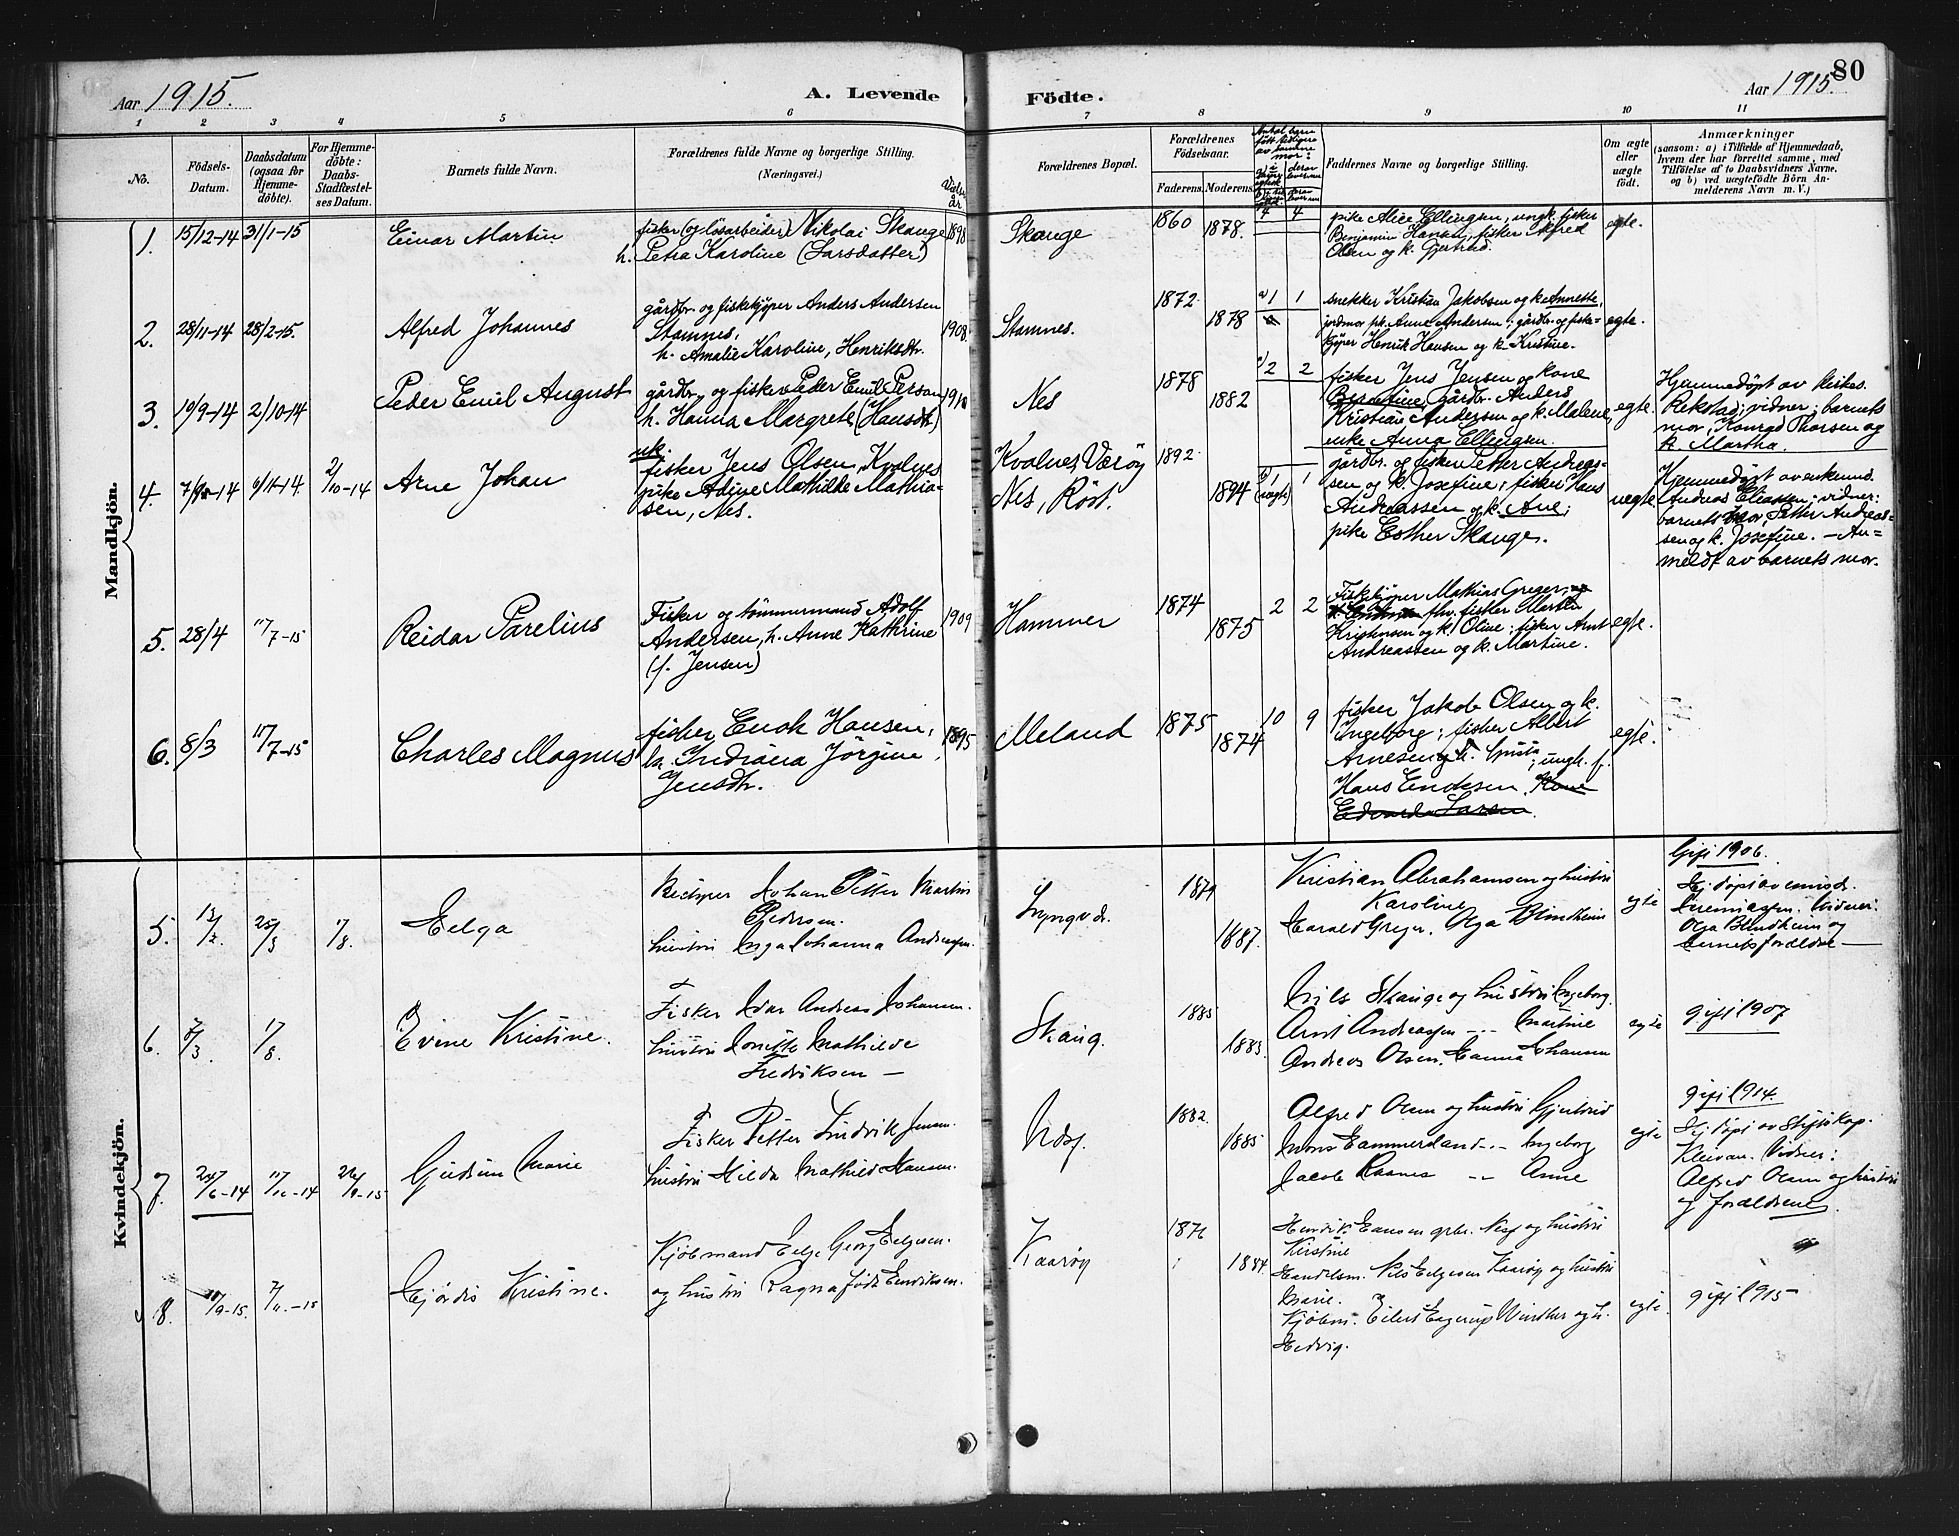 Aar 1915.
A. Levende
Födte.
Aar 1915.
80
1 2 3 4 5 6 7 8 9 10 11
No.
Födsels-
Datum.
Daabsdatum
(ogsaa for
Hjemme-
döbte).
For Hjemme-
döbte:
Daabs-
Stadfæstel-
ses Datum.
Barnets fulde Navn.
Forældrenes fulde Navne og borgerlige Stilling.
(Næringsvei.)
Vielses
år
Forældrenes Bopæl.
Forældrenes
Födselsaar.
Faderens. Moderens.
Antal barn
født tidligere
av samme
mor:
Faddernes Navne og borgerlige Stilling.
Om ægte
eller
uægte
födt.
Anmærkninger
(saasom: a) i Tilfælde af Hjemmedaab,
hvem der har forrettet samme, med
Tilföielse af to Daabsvidners Navne,
og b) ved uægtefödte Börn An-
melderens Navn m. V.)
Mandkjön.
1. 15/12-14 31/1-15
Einar Martin
fisker (og løsarbeider) Nikolai Skauge
h. Petra Karoline (Larsdatter)
1898
Skauge
1860
1878.
4 4
pike Alice Ellingsen, ungk. fisker
Benjamin Hansen, fisker Alfred
Olsen og k. Gjertrud.
egte.
2. 28/11-14 28/2-15.
Alfred Johannes
gårdbr. og fiskekjøper Anders Andersen
Stamnes,
h. Amalie Karoline, Henriksdtr.
1908.
Stamnes.
1872.
1878
1 1
snekker Kristian Jakobsen og k. Annette,
jordmor, pk. Anne Andersen; gårdbr. og fiske-
kjøper Henrik Hansen og k. Kristine.
egte.
3. 19/9-14 2/10-14
Peder Emil August
gårdbr. og fisker Peder Emil Person
h. Hanna Margrete (Hansdtr)
1910
Nes
1878
1882
2 2
fisker Jens Jensen og kone
Berntine, gårdbr. Anders
Kristian Andersen og k. Malene,
enke Anna Ellingsen.
egte.
Hjemmedøpt av kirkes.
Rekstad; vidner: barnets
mor, Konrad Thorsen og
k. Martha.
4.
2/10-14
Arne Johan
uk.
fisker Jens Olsen, Kvalnes
pike Adine Mathilde Mathia-
sen, Nes.
Kvalnes Værøy
Nes, Röst.
1892.
1894
1 1
gårdbr. og fisker Petter Andreas-
sen og k. Josefine; fisker Hans
Andreassen og k. Ane;
pike Esther Skauge.
uegte.
Hjemmedøpt av enkemd.
Andreas Eliassen; vidner:
barnets mor, Petter Andreas-
sen og k. Josefine. — An-
meldt av barnets mor.
5. 28/4 11/7-15
Reidar Parelius
Fisker og tømmermand Adolf
Andersen, h. Anne Kathrine
(f. Jensen)
1909
Hammer
1874
1875
2 2
Fiskekjøper Mathias Greger,
fhv. fisker Martin
Kristensen og k. Oline; fisker Arnt
Andreassen og k. Martine.
egte.
6. 8/3 11/7-15
Charles Magnus
fisker Enok Hansen,
h. Indiana Jørgine
Jensdtr.
1895
Meland
1875
1874
10 9
fisker Jakob Olsen og k.
Ingeborg; fisker Albert
Arnesen og k. ; ungk. f.
Hans Endesen, Kone
Edvarda Larsen.
egte.
Kvindekjön.
5.
17/8.
Helga
Johan Petter Martin
Pedersen.
hustru Inga Johanna Andreassen
Lyngvdr.
1879
1887.
Kristian Abrahamsen og hustru
Karoline
Harald Greger. Olga Blindheim
egte
Gift 1906.
Hj. døpt av
Jeremiassen. Vidner:
Olga Blindheim og
barnets forældre —
6.
Evine Kristine.
Fisker Ivar Andreas Johansen.
hustru Jonette Mathilde
Fredriksen —
Skaug.
1885
1883.
Nils Skauge og hustru Ingeborg.
Arnt Andreassen -"- Martine
Andreas Olsen. Hanna Johansen
egte
gift 1907
7.
Gudrun Marie
Fisker Petter Ludvik Jensen.
hustru Hilda Mathilde Hansen.
1882.
1885
Alfred Olsen og hustru Gjertrud
Mons Hammerland -"- Ingeborg
Jacob Raanes -"- Anne
egte
gift 1914.
Hj. døpt av Stiftskap.
Kleivan. Vidner:
Alfred Olsen og hustru
og forældrene
8.
Hjördis Kristine.
Kjöbmand Helge Georg Helgesen.
og hustru Ragna født Henriksen.
Kaarøy
1876
1884.
Henrik Hansen grbr. Nesj og hustru
Kirstine
Handelsm. Nils Helgesen Kaarøy og hustru
Marie.
Kjöbm. Eilert Hagerup Winther og h.
Hedvig.
egte.
gift 1915